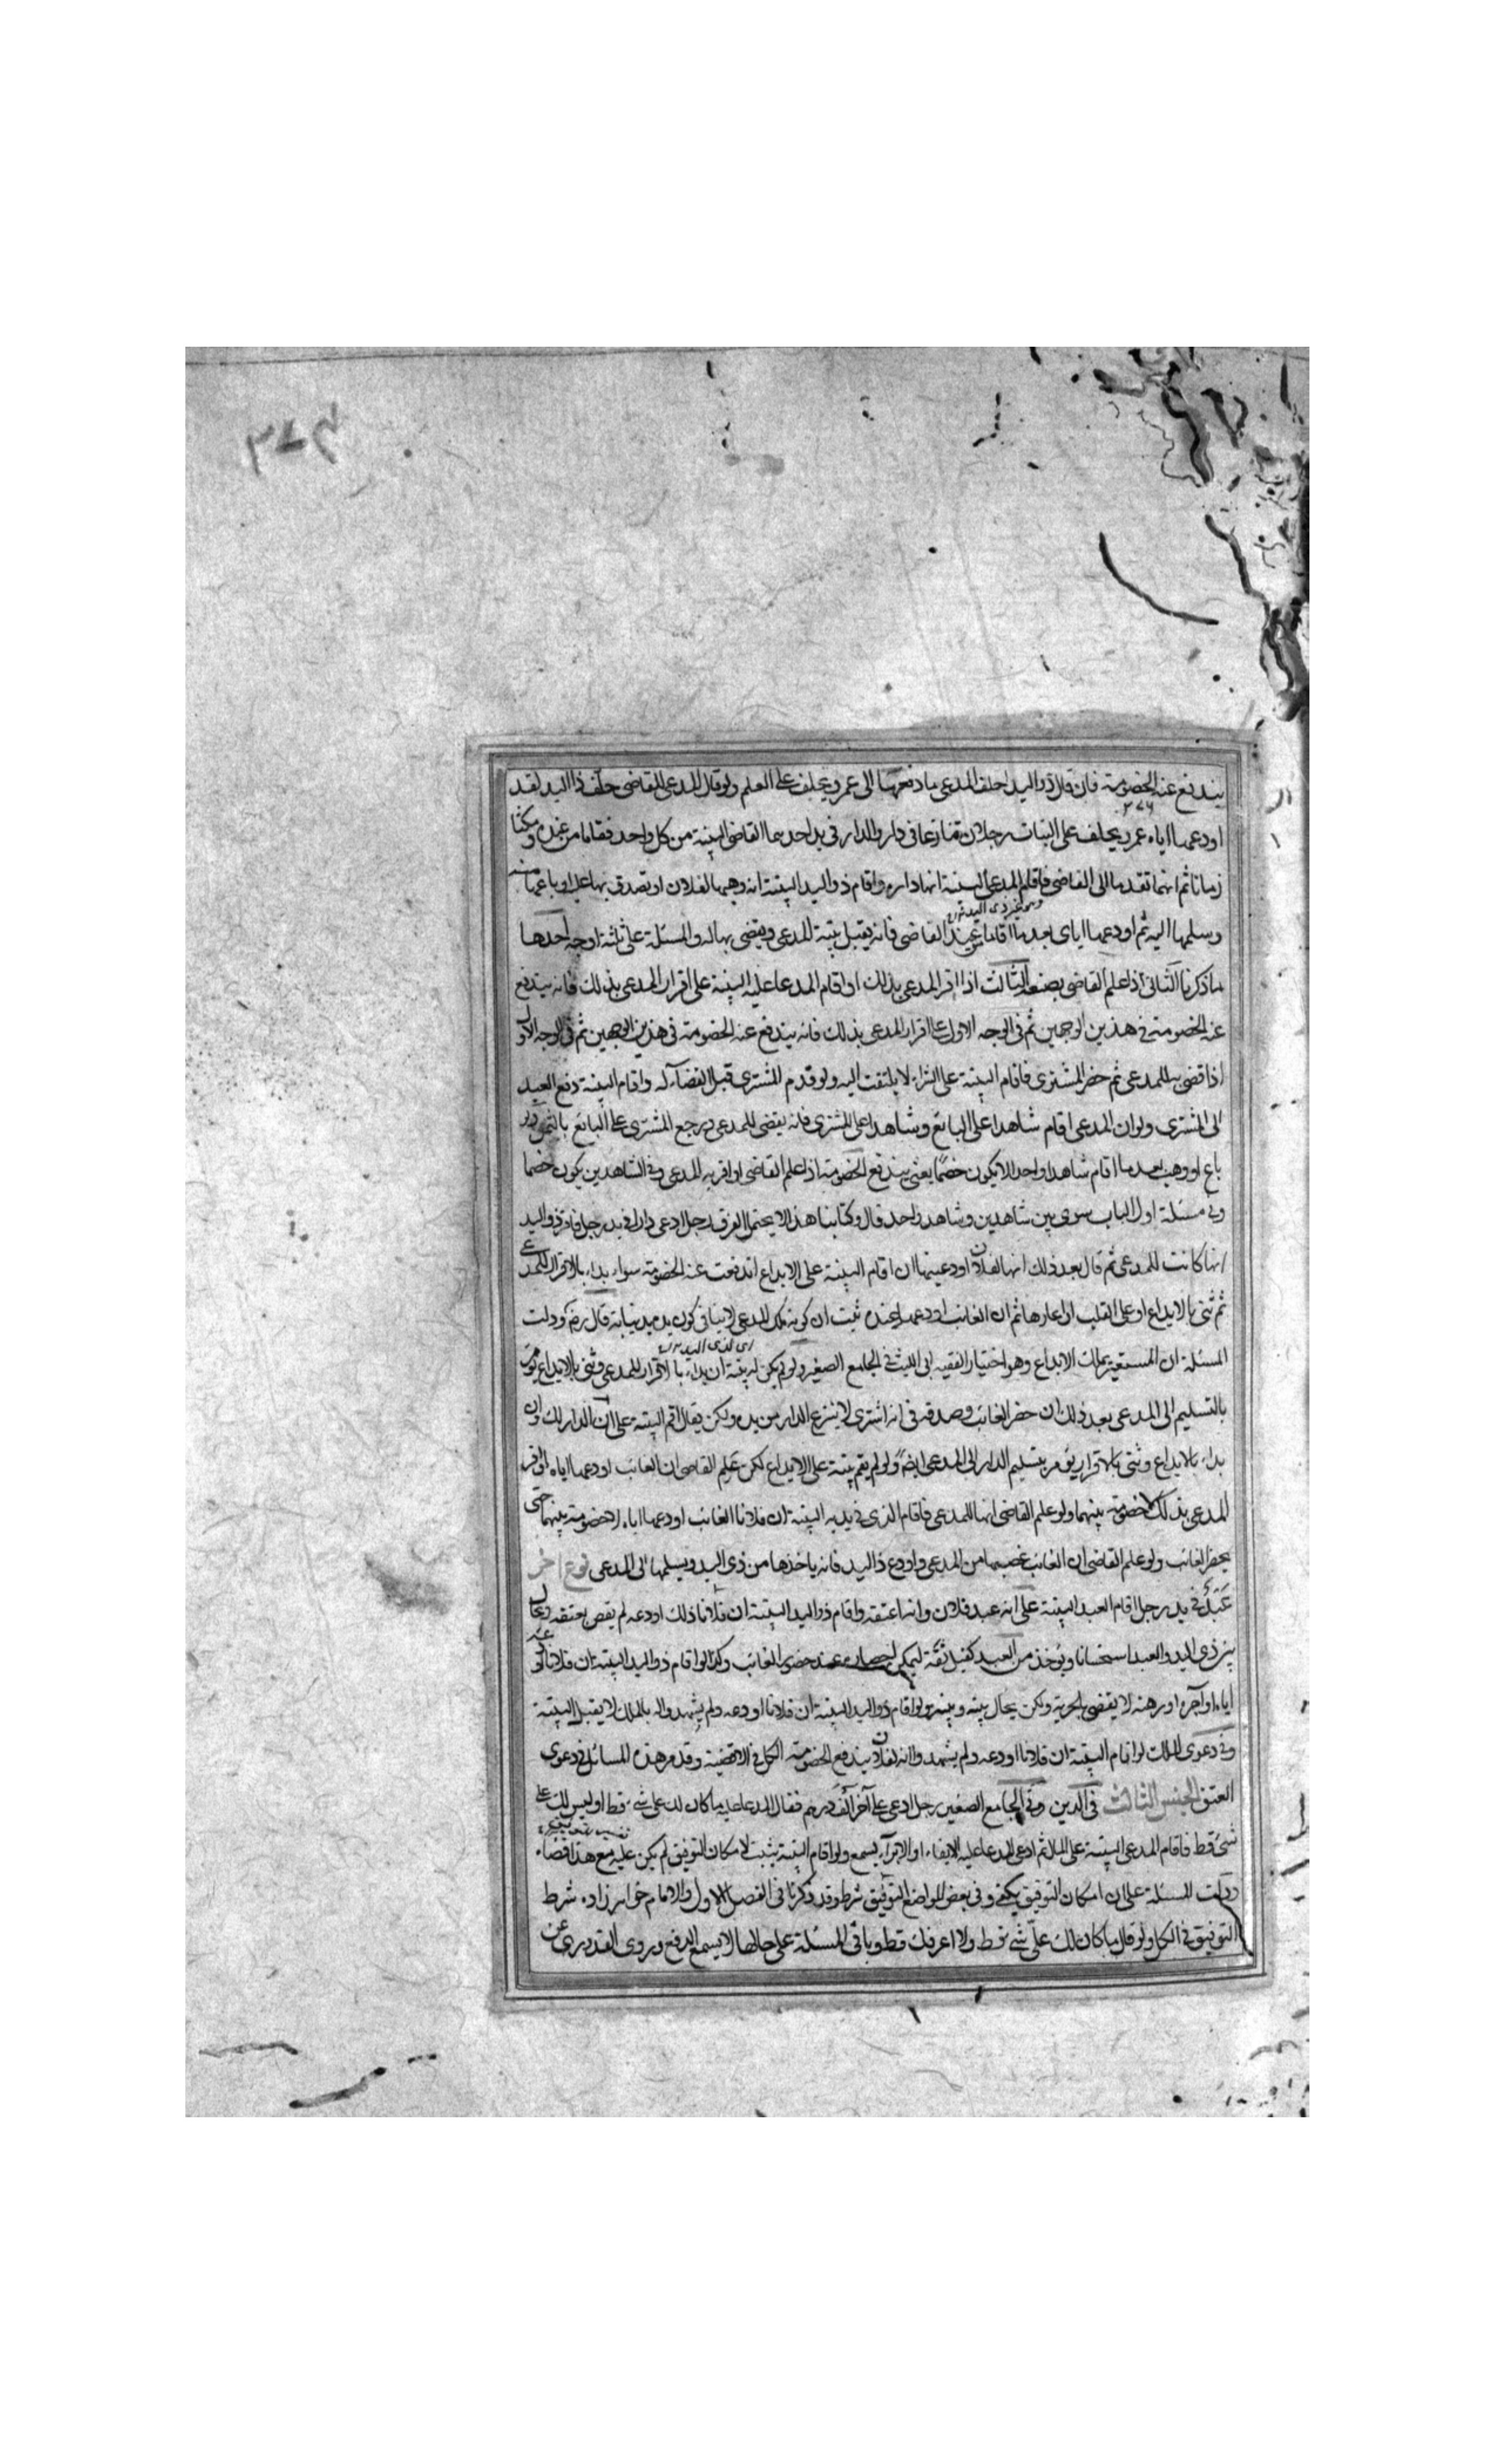 يندفع عنه الخصومة فان قال ذو اليد احلف المدعى ما دفعتها الى عمرو يحلف على العلم ولو قال المدعى للقاضى حلف ذا اليد لقد
اودعها اياه عمرو يحلف على البتات رجلان تنازعا فى دار والدار فى يد احدهما القاضى البينة من كل واحد فقاما من عنده ومكثا
زمانا ثم انهما تقدما الى القاضى فاقام المدعى البينة انها داره واقام ذو اليد البينة انه وهبها لفلان او تصدق بها عليه او باعها منه
وسلمها اليه ثم اودعها اياى بعد ما اقاما من عند القاضى فانه يقبل بينة المدعى ويقضى بها له والمسئلة على ثلثة اوجه احدها
ما ذكرنا الثانى اذا علم القاضى بصنعه الثالث اذا اقر المدعى بذلك او اقام المدعا عليه البينة على اقرار المدعى بذلك فانه يندفع
عنه الخصومة فى هذين الوجهين ثم فى الوجه الاول على اقرار المدعى بذلك فانه يندفع عنه الخصومة فى هذين الوجهين ثم فى الوجه الاول
اذا قضى به للمدعى ثم حضر المشترى فاقام البينة على الشراء لا يلتفت اليه ولو قدم المشترى قبل القضاء له واقام البينة دفع العبد
الى المشترى ولو ان المدعى اقام شاهدا على البائع وشاهدا على المشترى فانه يقضى للمدعى ويرجع المشترى على البائع بالثمن ولو
باع او وهب بعد ما اقام شاهدا واحدا لا يكون خصما يعنى يندفع الخصومة اذا علم القاضى او اقر به المدعى وفى الشاهدين يكون خصما
وفى مسئلة اول الباب سوى بين شاهدين وشاهد واحد قال وكتابنا هذا لا يحتمل الفرق رجل ادعى دارا فى يد رجل فاقر ذو اليد
انها كانت للمدعى ثم قال بعد ذلك انها لفلان اودعنيها ان اقام البينة على الايداع اندفعت عنه الخصومة سواء بداء بالاقرار للمدعى
ثم ثنى بالايداع او على القلب او اعارها ثم ان الغائب اودعها عنده ثبت ان كونه ملك المدعى لا ينافى كون يده يد نيابة قال رضه ودلت
المسئلة ان المستعير يملك الايداع وهو اختيار الفقيه ابى الليث فى الجامع الصغير ولو لم يكن له بينة ان بداء بالاقرار للمدعى وثنى بالايداع يؤمر
بالتسليم الى المدعى بعد ذلك ان حضر الغائب وصدقه فى انه اشترى لا ينزع الدار من يده ولكن يقال اقم البينة على ان الدار لك وان
بداء بالايداع وثنى بالاقرار يؤمر بتسليم الدار الى المدعى ايضا ولو لم يقم بينة على الايداع لكن علم القاضى ان الغائب اودعها اياه او اقر
المدعى بذلك لا خصومة بينهما ولو علم القاضى انها للمدعى فاقام الذى فى يديه البينة ان فلانا الغائب اودعها اياه لا خصومة بينهما حتى
يحضر الغائب ولو علم القاضى ان الغائب غصبها من المدعى واودع ذا اليد فانه ياخذها من ذى اليد ويسلمها الى المدعى نوع اخر
عبد فى يد رجل اقام العبد البينة على انه عبد فلان وانه اعتقه واقام ذو اليد البينة ان فلانا ذلك اودعه لم يقض بعتقه وحال
بين ذى اليد والعبد استحسانا ويؤخذ من العبد كفيل ثقة عند حضور الغائب وكذا لو اقام ذو اليد البينة ان فلانا
اياه او آجره او رهنه لا يقضى بالحرية ولكن يحال بينه وبينه ولو اقام ذو اليد البينة ان فلانا اودعه ولم يشهدوا له بالملك لا يقبل البينة
وفى دعوى الملك لو اقام البينة ان فلانا اودعه ولم يشهدوا انه لفلان يندفع الخصومة الكل فى الاقضية وقد مر هذه المسائل فى دعوى
العتق الجنس الثالث فى الدين وفى الجامع الصغير رجل ادعى على آخر الف درهم فقال المدعا عليه ما كان لك على شئ قط او ليس لك على
شئ قط فاقام المدعى البينة على المال ثم ادعى المدعا عليه الايفاء او الابراء يسمع ولو اقام البينة يثبت لامكان التوفيق لم يكن عليه مع هذا قضاء
ودلت المسئلة على ان امكان التوفيق يكفى وفى بعض المواضع التوفيق شرط وقد ذكرنا فى الفصل الاول والامام خواهر زاده شرط
التوفيق فى الكل ولو قال ما كان لك على شئ قط ولا اعرفك قط وباقى المسئلة على حالها لا يسمع الدفع وروى القدورى عن